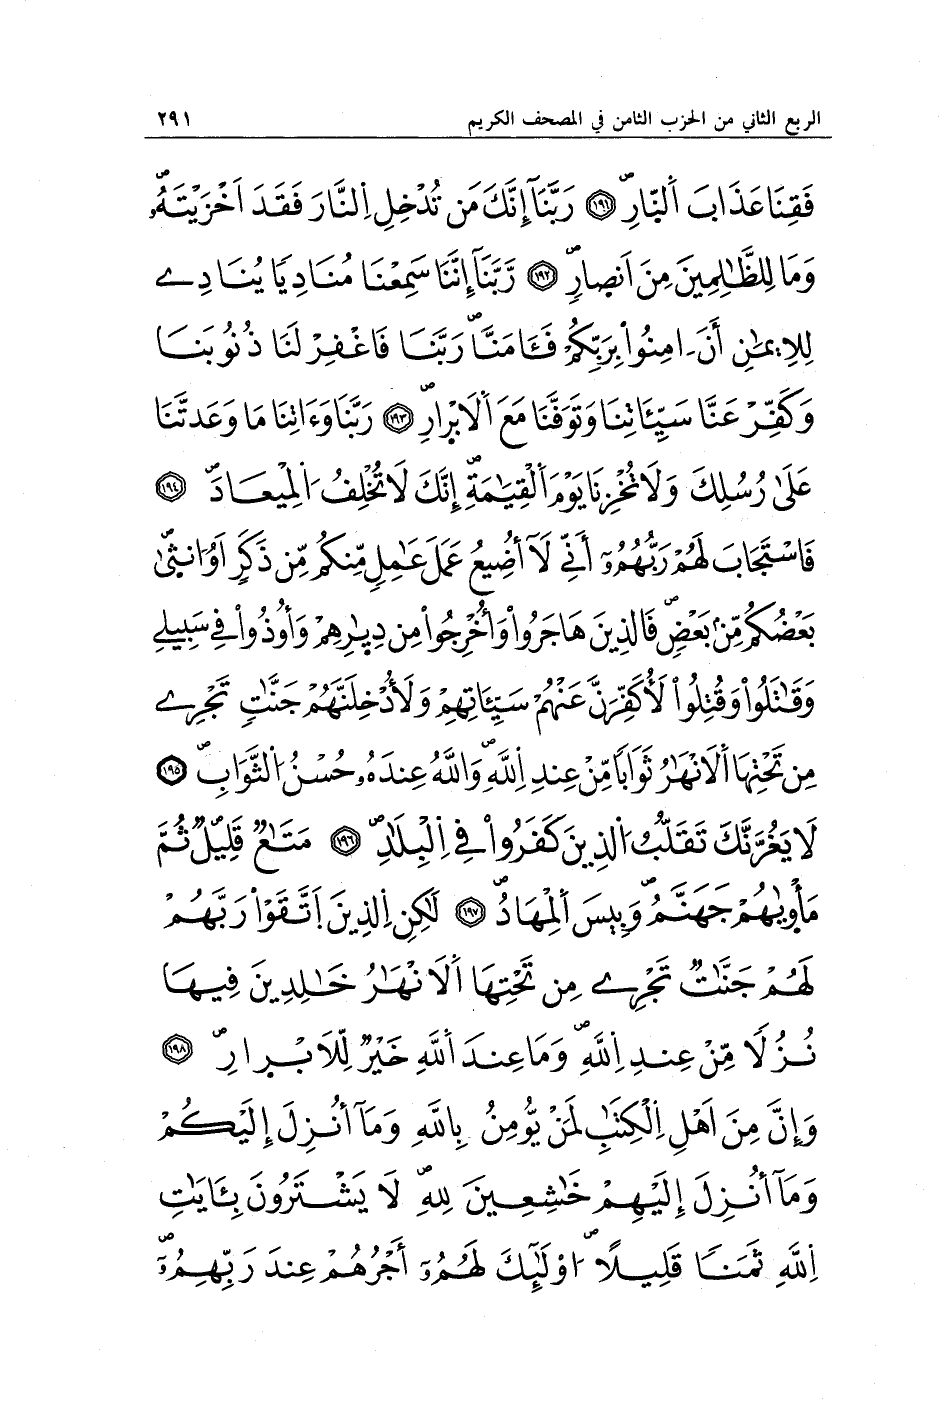 الربع الثاني من الحزب الثامن في المصحف الكريم ٢٩١
فَقِنَا عَذَابَ اَ۬لنّ۪ارِۖ ١٩١ رَبَّنَآ إِنَّكَ مَن تُدْخِلِ اِ۬لنَّارَ فَقَدَ اَخْزَيْتَهُۥۖ
وَمَا لِلظَّٰلِمِينَ مِنَ اَنص۪ارٖۖ ١٩٢ رَّبَّنَآ إِنَّنَا سَمِعْنَا مُنَادِياٗ يُنَادِے
لِلِايمَٰنِ أَنَ اٰمِنُواْ بِرَبِّكُمْ فَـَٔامَنَّاۖ رَبَّنَا فَاغْفِرْ لَنَا ذُنُوبَنَا
وَكَفِّرْ عَنَّا سَيِّـَٔاتِنَا وَتَوَفَّنَا مَعَ اَ۬لَابْر۪ارِۖ ١٩٣ رَبَّنَا وَءَاتِنَا مَا وَعَدتَّنَا
عَلَىٰ رُسُلِكَ وَلَا تُخْزِنَا يَوْمَ اَ۬لْقِيَٰمَةِۖ إِنَّكَ لَا تُخْلِفُ اُ۬لْمِيعَادَۖ ١٩٤
فَاسْتَجَابَ لَهُمْ رَبُّهُمُۥٓ أَنِّے لَآ أُضِيعُ عَمَلَ عَٰمِلٖ مِّنكُم مِّن ذَكَرٍ اَوُ ا۟نث۪ىٰۖ
بَعْضُكُم مِّنۢ بَعْضٖۖ فَالذِينَ هَاجَرُواْ وَأُخْرِجُواْ مِن دِيٰ۪رِهِمْ وَأُوذُواْ فِے سَبِيلِے
وَقَٰتَلُواْ وَقُتِلُواْ لَأُكَفِّرَنَّ عَنْهُمْ سَيِّـَٔاتِهِمْ وَلَأُدْخِلَنَّهُمْ جَنَّٰتٖ تَجْرِے
مِن تَحْتِهَا اَ۬لَانْهَٰرُ ثَوَاباٗ مِّنْ عِندِ اِ۬للَّهِۖ وَاللَّهُ عِندَهُۥ حُسْنُ اُ۬لثَّوَابِۖ ١٩٥
لَا يَغُرَّنَّكَ تَقَلُّبُ اُ۬لذِينَ كَفَرُواْ فِے اِ۬لْبِلَٰدِۖ ١٩٦ مَتَٰعٞ قَلِيلٞۖ ثُمَّ
مَأْو۪يٰهُمْ جَهَنَّمُۖ وَبِيسَ اَ۬لْمِهَادُۖ ١٩٧ لَٰكِنِ اِ۬لذِينَ اَ۪تَّقَوْاْ رَبَّهُمْ
لَهُمْ جَنَّٰتٞ تَجْرِے مِن تَحْتِهَا اَ۬لَانْهَٰرُ خَٰلِدِينَ فِيهَا
نُزُلاٗ مِّنْ عِندِ اِ۬للَّهِۖ وَمَا عِندَ اَ۬للَّهِ خَيْرٞ لِّلَابْر۪ارِۖ ١٩٨
وَإِنَّ مِنَ اَهْلِ اِ۬لْكِتَٰبِ لَمَنْ يُّومِنُ بِاللَّهِ وَمَآ أُنزِلَ إِلَيْكُمْ
وَمَآ أُنزِلَ إِلَيْهِمْ خَٰشِعِينَ لِلهِۖ لَا يَشْتَرُونَ بِـَٔايَٰتِ
اِ۬للَّهِ ثَمَناٗ قَلِيلاًۖ ا۟وْلَٰٓئِكَ لَهُمُۥٓ أَجْرُهُمْ عِندَ رَبِّهِمُۥٓۖ